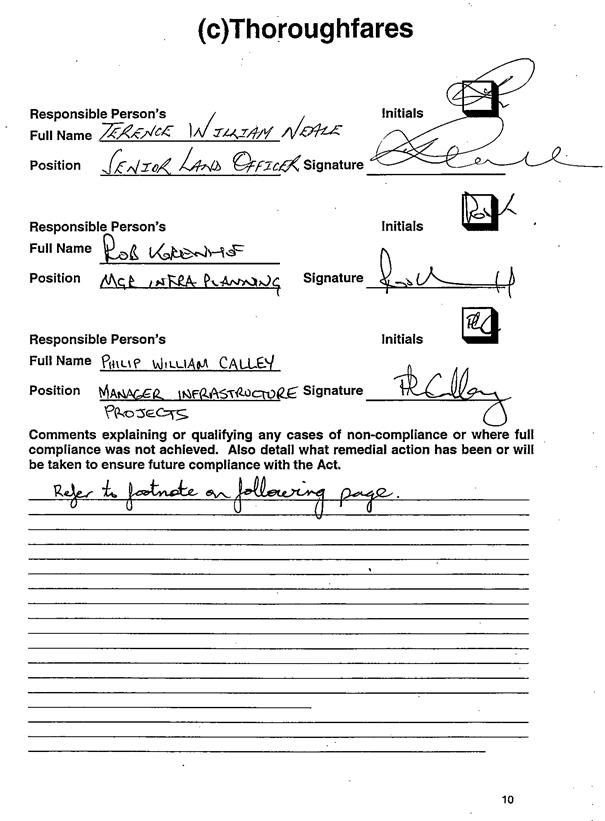 (c)Thoroughfares
Responsible Person's Initials
Full Name TERENCE WILLIAM NEALE
Position SENIOR LAND OFFICER Signature
Responsible Person's Initials
Full Name ROB KORENHOF
Position MGR INFRA PLANNING Signature
Responsible Person's Initials
Full Name PHILIP WILLIAM CALLEY
Position MANAGER INFRASTRUCTURE Signature
PROJECTS
Comments explaining or qualifying any cases of non-compliance or where full
compliance was not achieved. Also detail what remedial action has been or will
be taken to ensure future compliance with the Act.
Refer to footnote on following page.
10